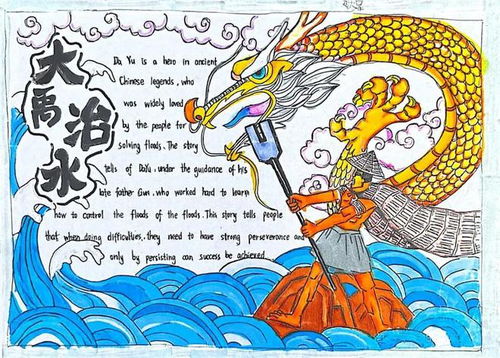 大禹治水
Da Yu is a hero in ancient
Chinese legends, who
was widely loved
by the people for
solving floods. The story
tells of DaYu, under the guidance of his
late father Gun, who worked hard to learn
how to control the floods of the floods. This story tells people
that when doing difficulties, they need to have strong perseverance and
only by persisting can success be achieved.